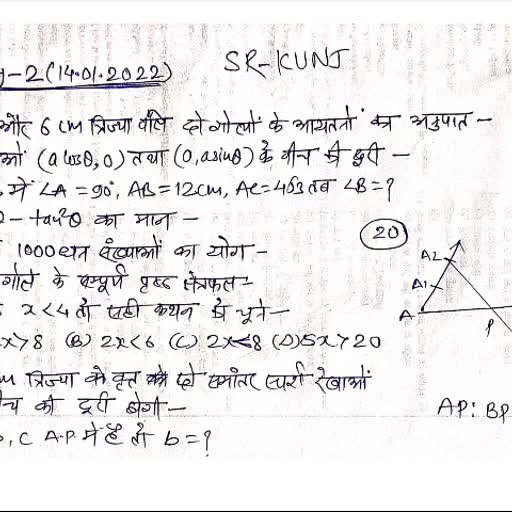 -2(14.01.2022) SR-KUNJ
और 6 cm त्रिज्या वाले दो गोलों के आयतनों का अनुपात -
ओं (a cosθ, 0) तथा (0, a sinθ) के बीच की दूरी -
में ∠A = 90°, AB = 12cm, AC = 4√3 तब ∠B = ?
- tan²θ का मान -
1000 धन संख्याओं का योग -
गोले के सम्पूर्ण पृष्ठ क्षेत्रफल -
x < 4 तो सही कथन को चुने -
x > 8 (B) 2x < 6 (C) 2x < 8 (D) 5x > 20
त्रिज्या के वृत्त की दो समांतर स्पर्श रेखाओं
की दूरी होगी -
, C A.P में हैं तो b = ?
20
A2
A1
A
P
AP: BP